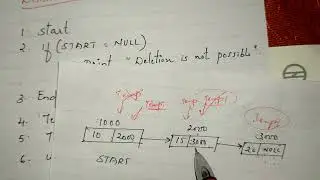 1. start
2. if (START = NULL)
print "Deletion is not possible"
3. End
4. "Te
5. T
6.
Temp
1000
2000
3000
10 2000
15 3000
26 NULL
START